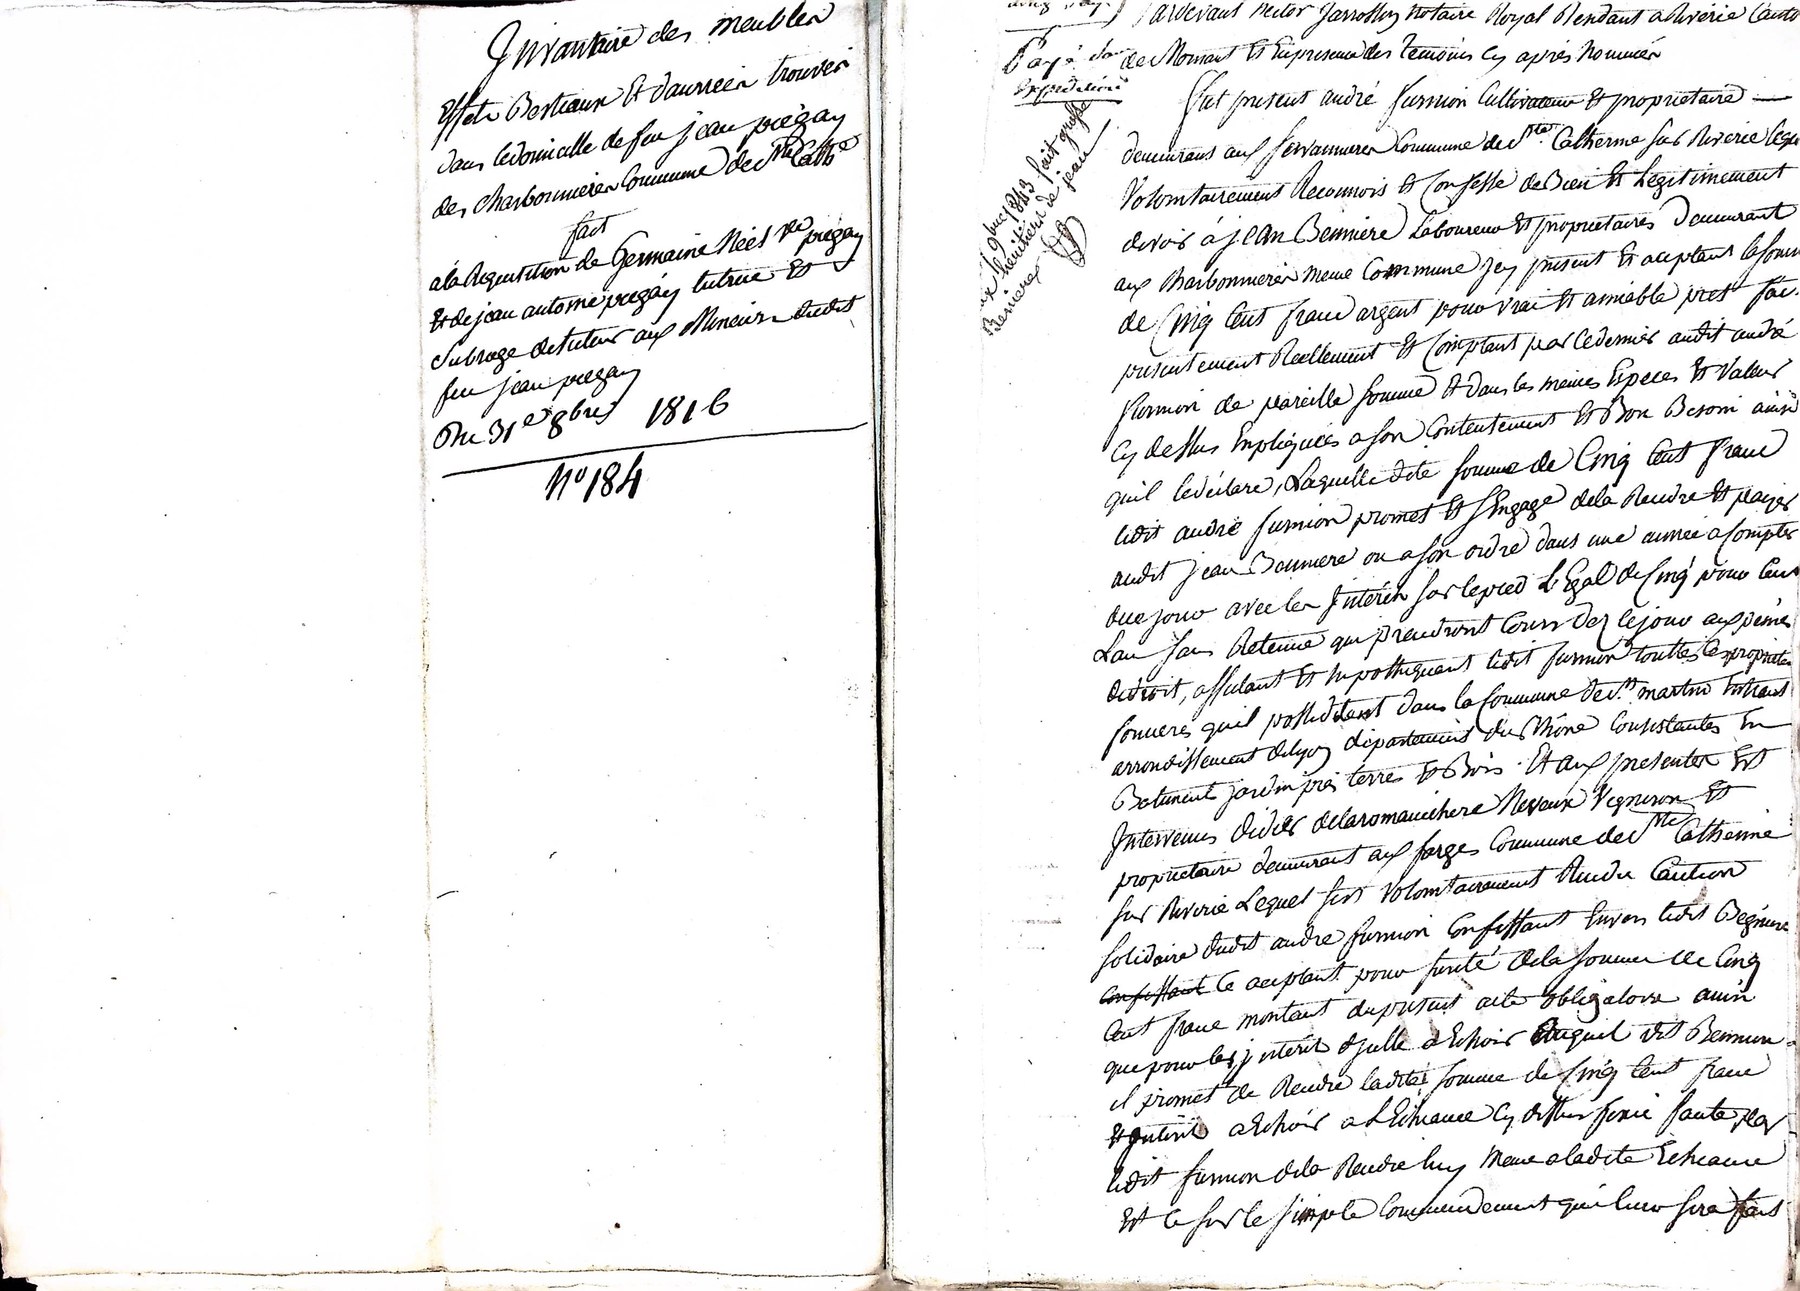 Inventaire des meubles
Effets Bestiaux Et danrées trouvés
dans ledomicille de feu jean piégay
des charbonnieres Commune de Ste Cathe
fait
ala Requisition de Germaine Néel ve piégay
Et de jean antoine piégay tutrice Et
Subrogé detuteur aux Mineurs dudit
feu jean piegay
Du 31e 8bre 1816
No 184
Payé
Expedition
9bre 1843 fait grosse
aux héritiers de jean
Besnieres
Pardevant Nector Jarrosson Notaire Royal Residant a Riverie Canto
de Mornant Et En presence des temoins Cy après Nommés
Fut present andré furnion Cultivateur Et proprietaire
demeurant aux Commune de Ste Catherine sur Riverie lequel
Volontairement Reconnois Et Confesse de Bien Et Légitimement
devoir á jEAN Bennière Laboureur Et proprietaires demeurant
aux Charbonnieres meme Commune jcy present Et aceptant lasomme
de Cinq Cent franc argent pour vrai Et amiable pret fai
presentement Réellement Et Comptant par cedernier audit andré
furnion de pareille somme Et dans les meines Especes Et Valeur
Cy dessus Expliquées a son Contentement Et Bon Besoin ainsi
quil ledéclare, Laquelle dite somme de Cinq Cent franc
ledit andré furnion promet Et SEngage dela Rendre Et payer
audit jean Benniere ou a son ordre dans une année a Compter
dece jour avec les Intérés sur lepied LEgal de Cinq pour Cent
Lan sans Retenue qui prendront Cours dez cejour aux peines
dedroit, affectant Et hypothequant ledit furnion touttes les proprietes
foncieres quil possedent dans la Commune de St martin
arrondissement delyon département du Rhône Consistantes En
Batiment jardin prés terres Et Bois. Et aux presentes Est
Intervenus didier delaromanchere Neveux Vigneron Et
proprietaire demeurant aux farges Commune de Ste Catherine
sur Riverie Lequel sest Volontairement Rendu Caution
Solidaire dudit andré furnion Confessant Envers ledit Begniere
Confessant Ce aceptant pour sureté dela somme de Cinq
Cent franc montant du present acte obligatoire ainsi
que pour les jntérét djcelle a Echoir auquel dit Bennière
il promet de Rendre ladite somme de Cinq Cent franc
Et jntérét a Echoir a LEcheance Cy dessus fixée faute par
ledit furnion dela Rendre luy Meme aladite Echeance
Et Ce sur le simple Commendement qui luur sera fait